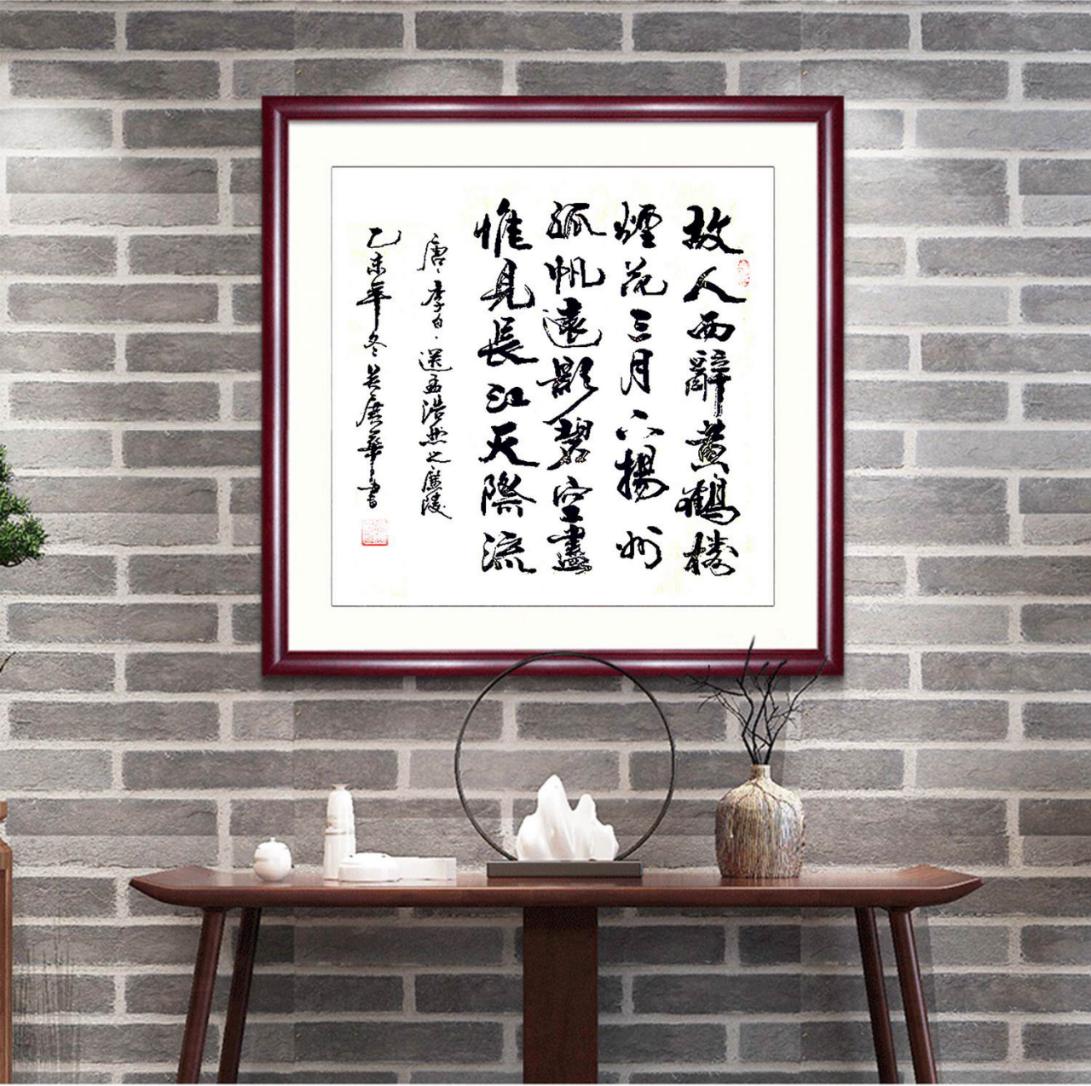 故人西辭黃鶴樓
煙花三月下揚州
孤帆遠影碧空盡
惟見長江天際流
唐李白·送孟浩然之廣陵
乙未年冬吴庆華書